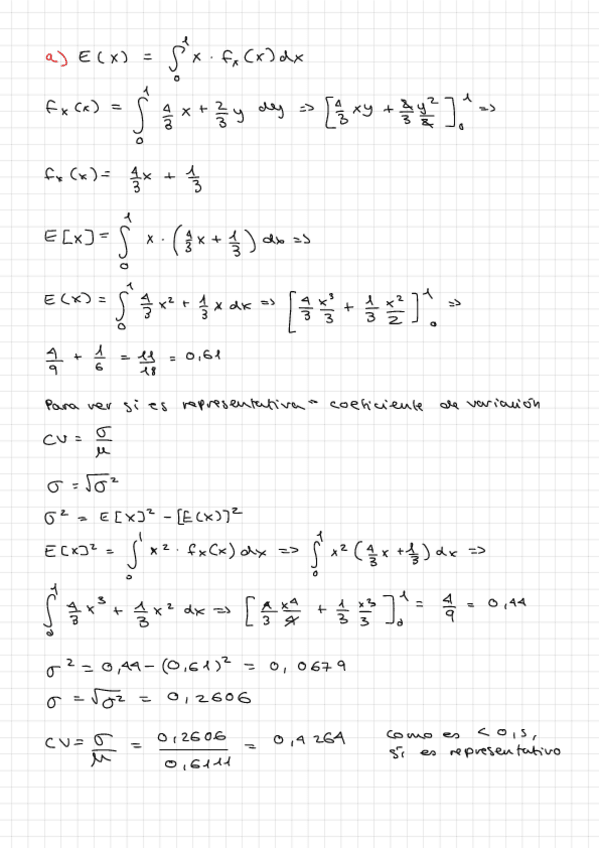 a) E(x) = ∫₀¹ x · fₓ(x) dx
fₓ(x) = ∫₀¹ 4/3 x + 2/3 y dy => [4/3 xy + 2/3 y²/2]₀¹ =>
fₓ(x) = 4/3 x + 1/3
E[x] = ∫₀¹ x · (4/3 x + 1/3) dx =>
E(x) = ∫₀¹ 4/3 x² + 1/3 x dx => [4/3 x³/3 + 1/3 x²/2]₀¹ =>
4/9 + 1/6 = 11/18 = 0,61
Para ver si es representativa = coeficiente de variación
CV = σ/μ
σ = √σ²
σ² = E[x]² - [E(x)]²
E[x]² = ∫₀¹ x² · fₓ(x) dx => ∫₀¹ x² (4/3 x + 1/3) dx =>
∫₀¹ 4/3 x³ + 1/3 x² dx => [4/3 x⁴/4 + 1/3 x³/3]₀¹ = 4/9 = 0,44
σ² = 0,44 - (0,61)² = 0,0679
σ = √σ² = 0,2606
CV = σ/μ = 0,2606/0,6111 = 0,4264 como es < 0,5,
sí es representativo